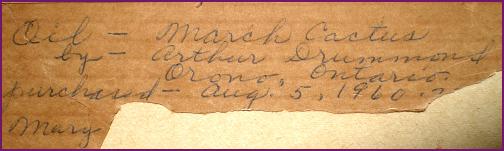 Oil - March Cactus
by - Arthur Drummond
Orono, Ontario
purchased - Aug. 5, 1960.
Mary